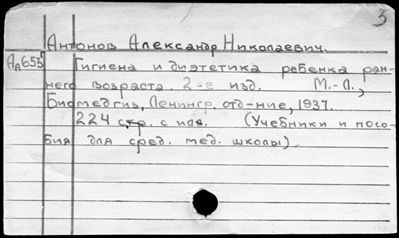 3
Антонов Александр Николаевич.
Аа653 Гигиена и диэтетика ребенка ран-
него возраста. 2-е изд. М.-Л.,
Биомедгиз, Ленингр. отд-ние, 1937.
224 стр. с илл. (Учебники и посо-
бия для сред. мед. школы).